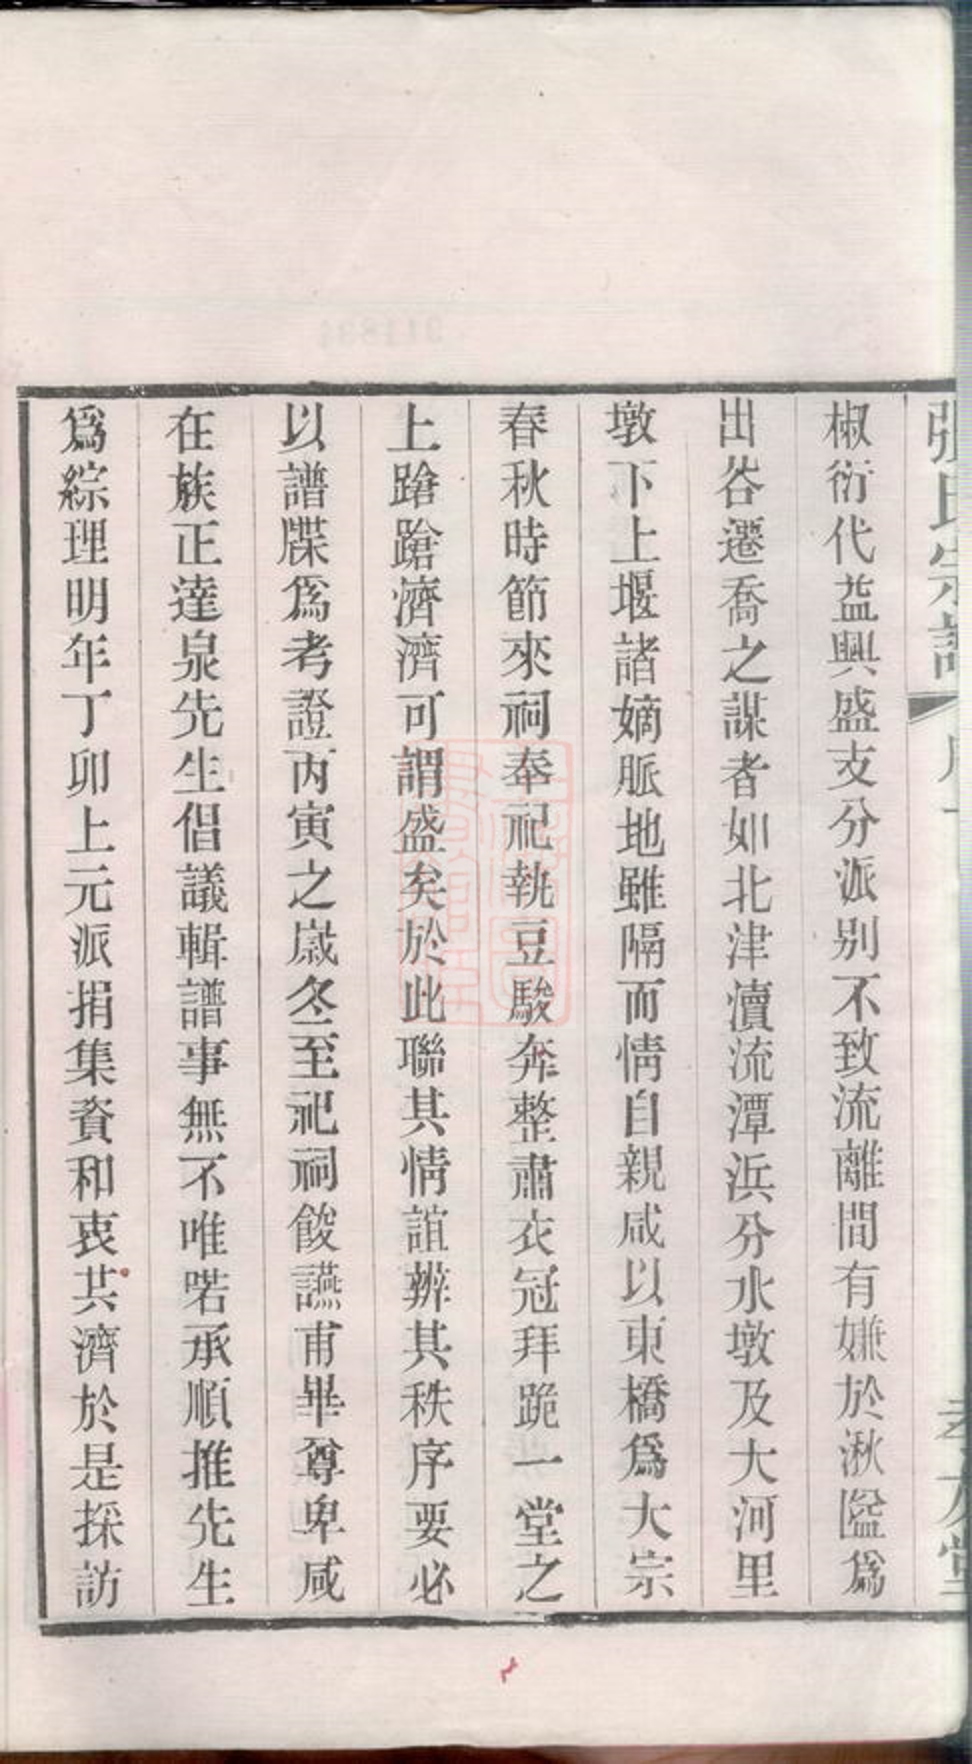 張氏宗譜
椒衍代益興盛支分派別不致流離間有嫌於湫隘爲
出谷遷喬之謀者如北津瀆流潭浜分水墩及大河里
墩下上堰諸嫡脈地雖隔而情自親咸以東橋爲大宗
春秋時節來祠奉祀執豆駿奔整肅衣冠拜跪一堂之
上蹌蹌濟濟可謂盛矣於此聯其情誼辨其秩序要必
以譜牒爲考證丙寅之歲冬至祀祠餕讌甫畢尊卑咸
在族正達泉先生倡議輯譜事無不唯喏承順推先生
爲綜理明年丁卯上元派捐集資和衷共濟於是採訪